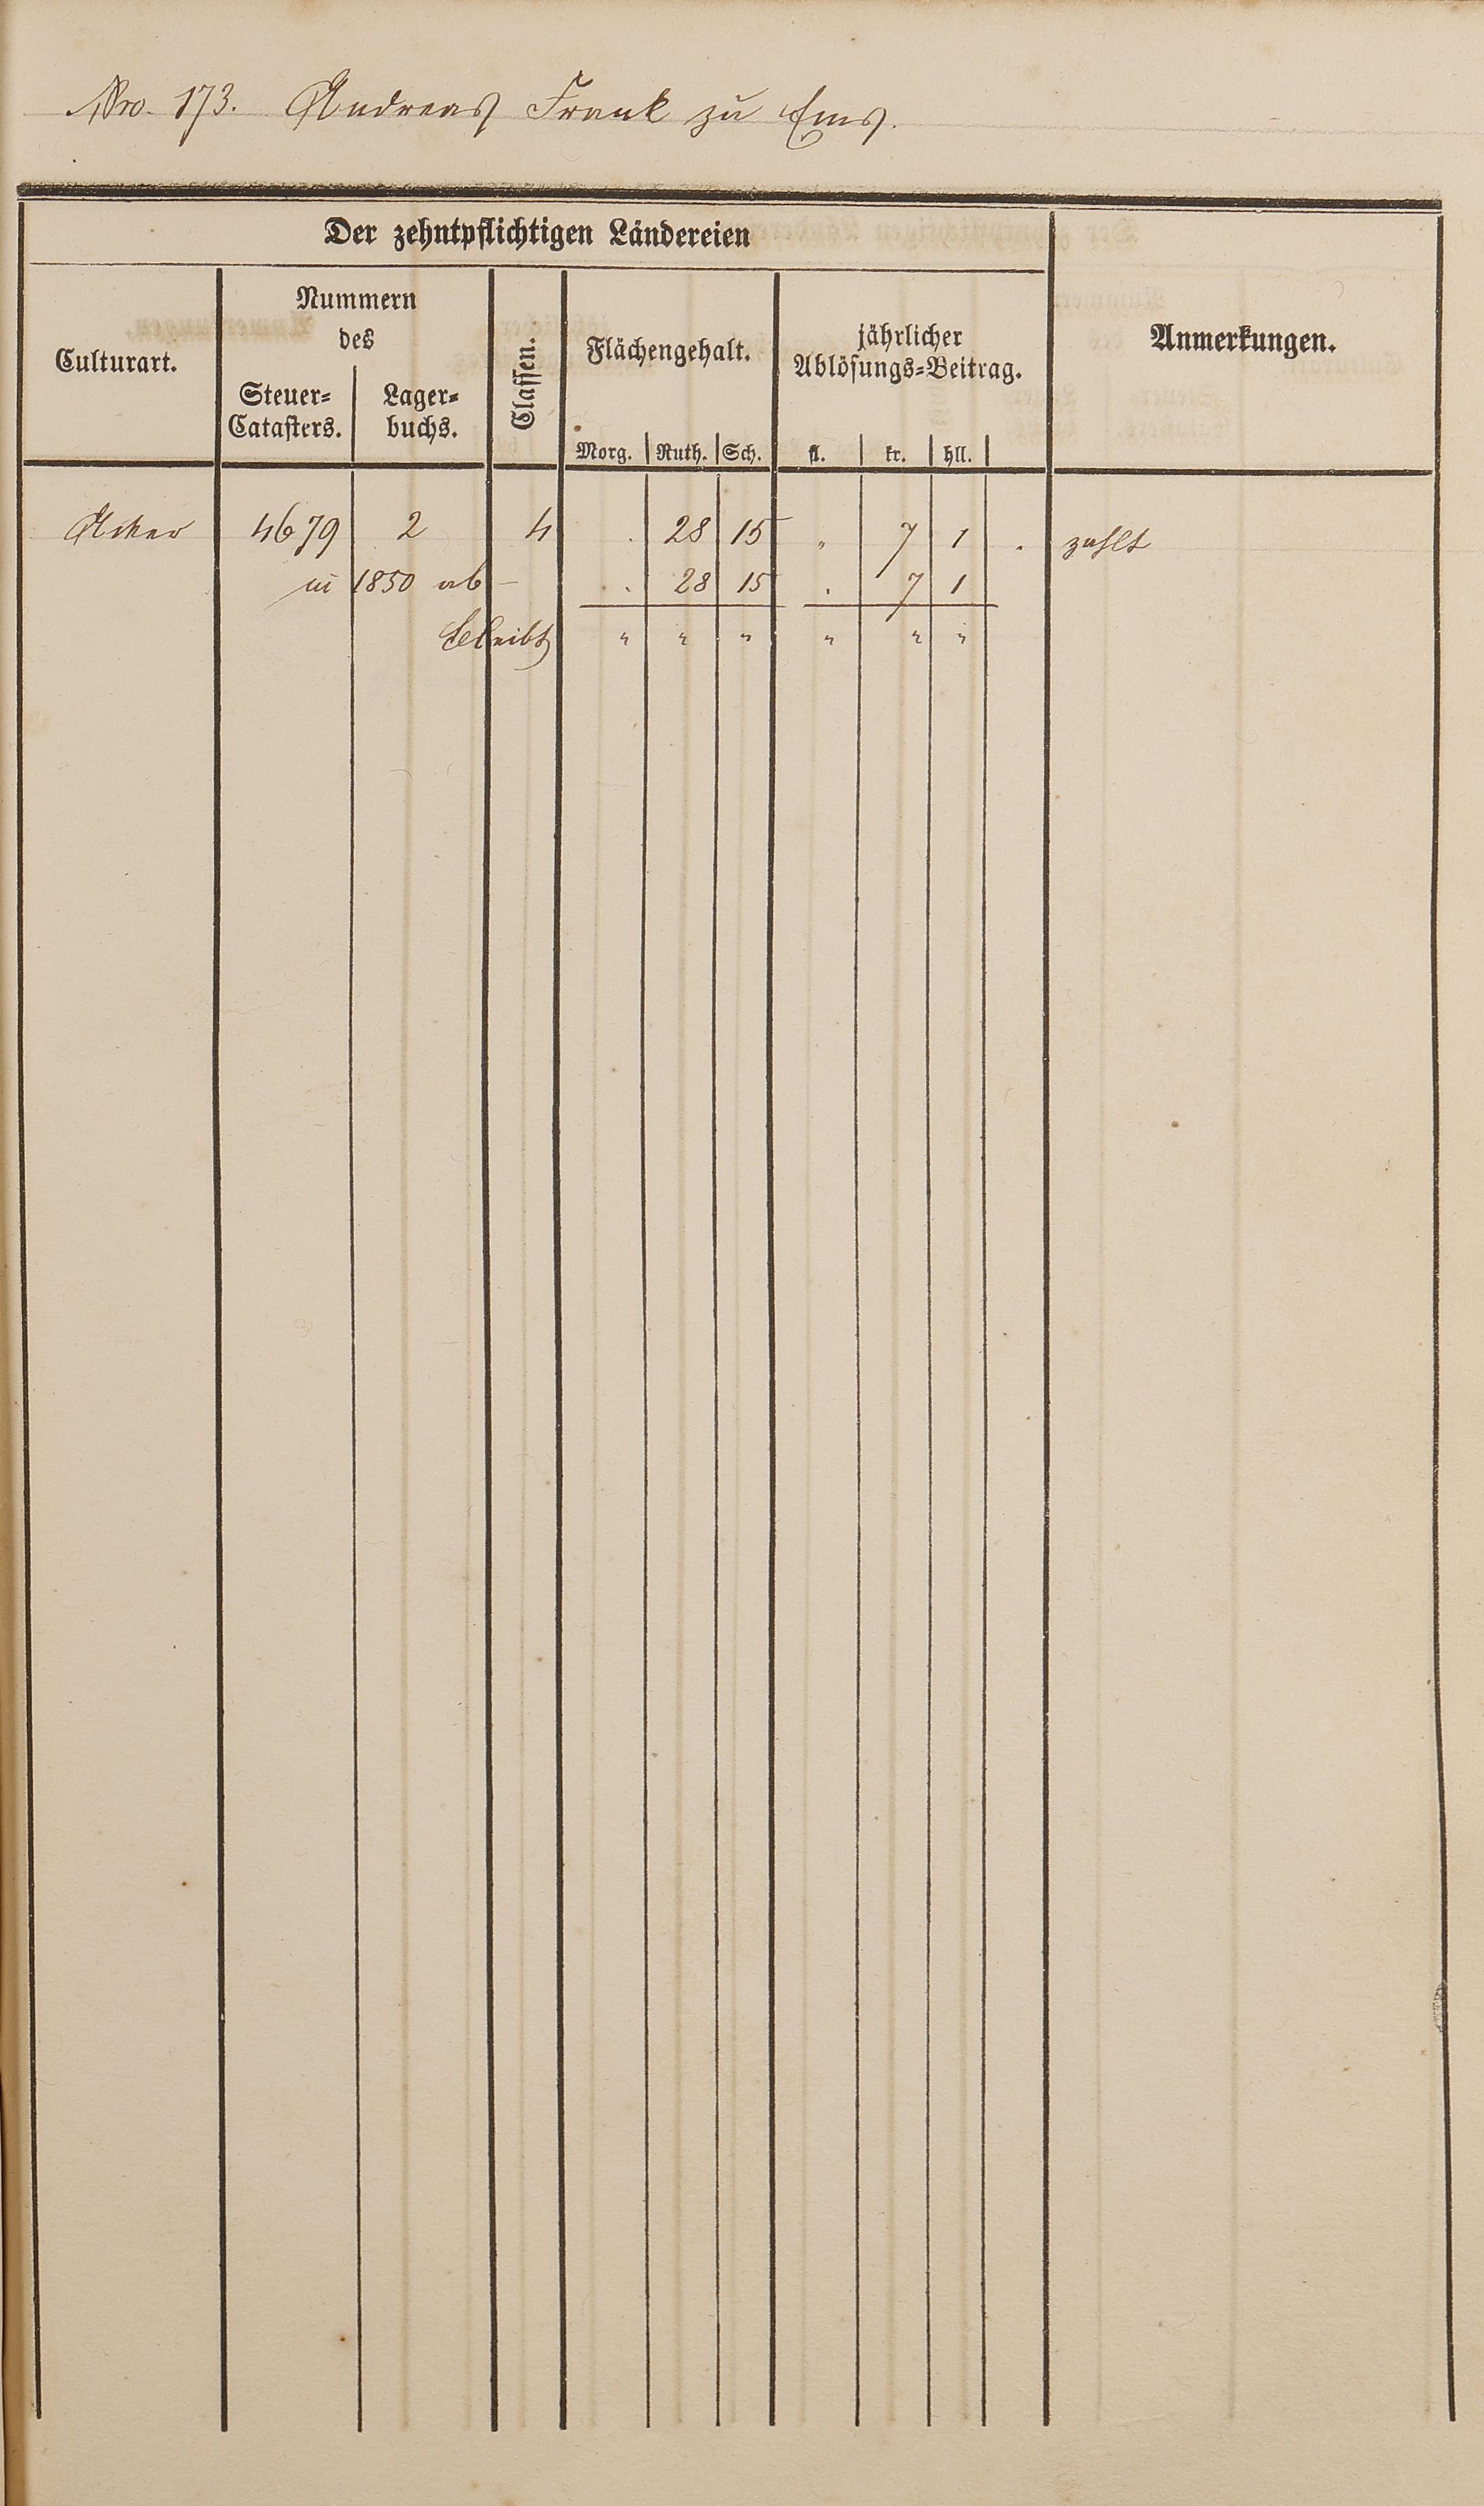 Nro. 173. Andreas Frank zu Ems.
Der zehntpflichtigen Ländereien
Culturart.
Nummern
des
Steuer-
Catasters.
Lager-
buchs.
Classen.
Flächengehalt.
Morg. Ruth. Sch.
jährlicher
Ablösungs-Beitrag.
fl. kr. hll.
Anmerkungen.
Acker 4679 2 4 . 28 15 „ 7 1 . zahlt
in 1850 ab - . 28 15 . 7 1
bleibt „ „ „ „ „ „